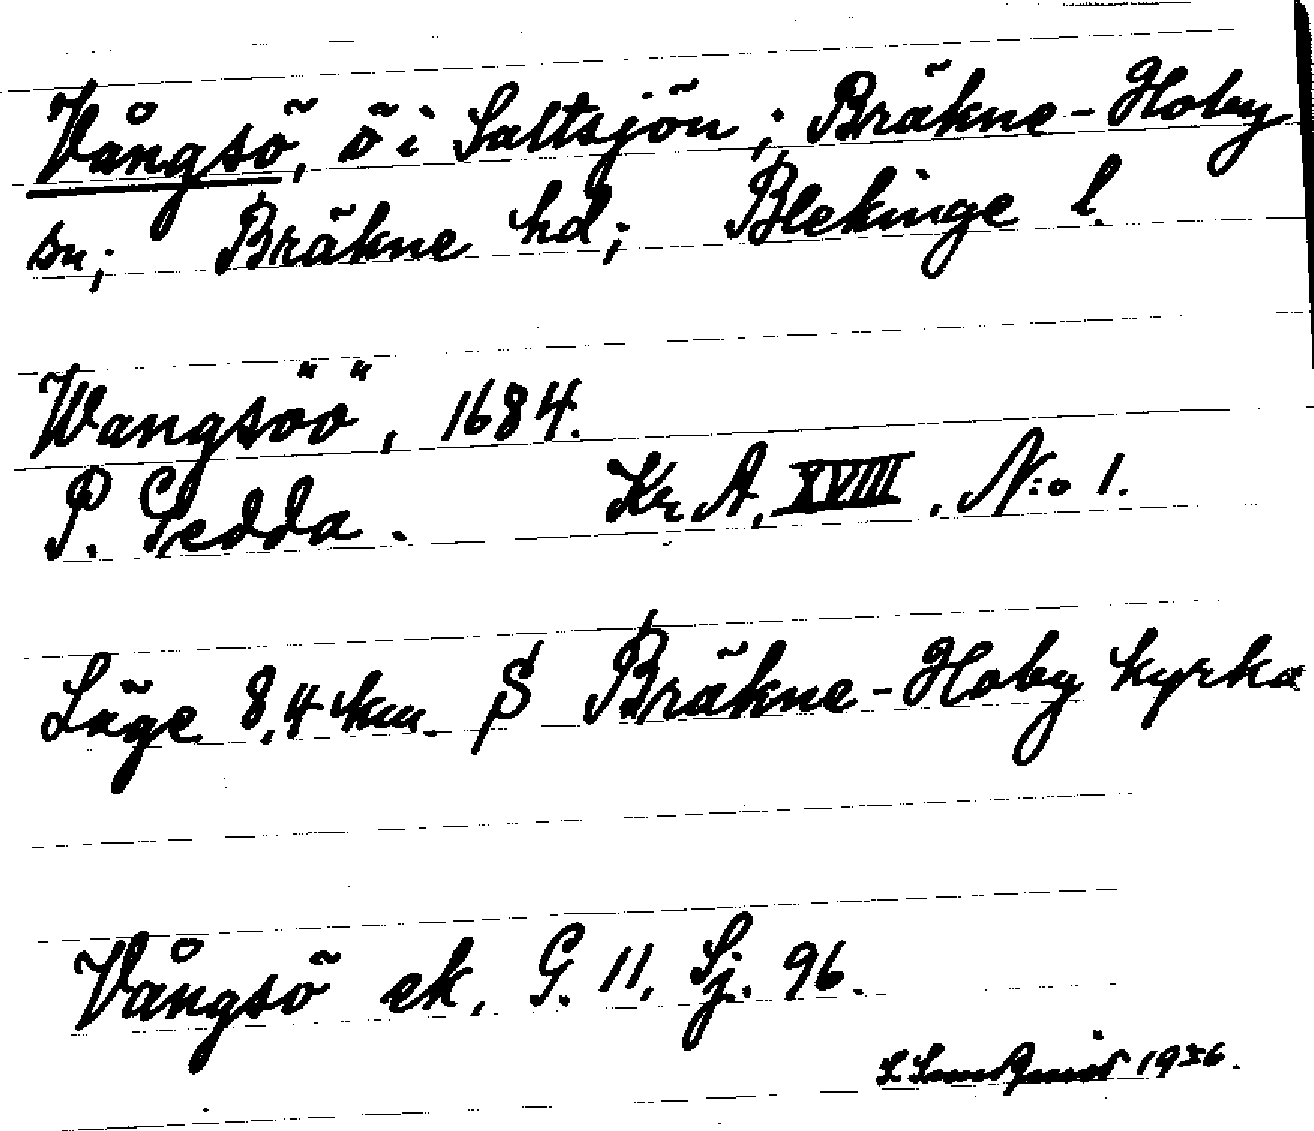 Vångsö, ö i Saltsjön; Bräkne-Hoby
sn; Bräkne hd; Blekinge l.
Wangsöö, 1684.
P. Gedda. Kr. A. XVIII, N:o 1.
Läge 8,4 km. S Bräkne-Hoby kyrka
Vångsö ek. G. 11, Sj. 96.
S. 1936.